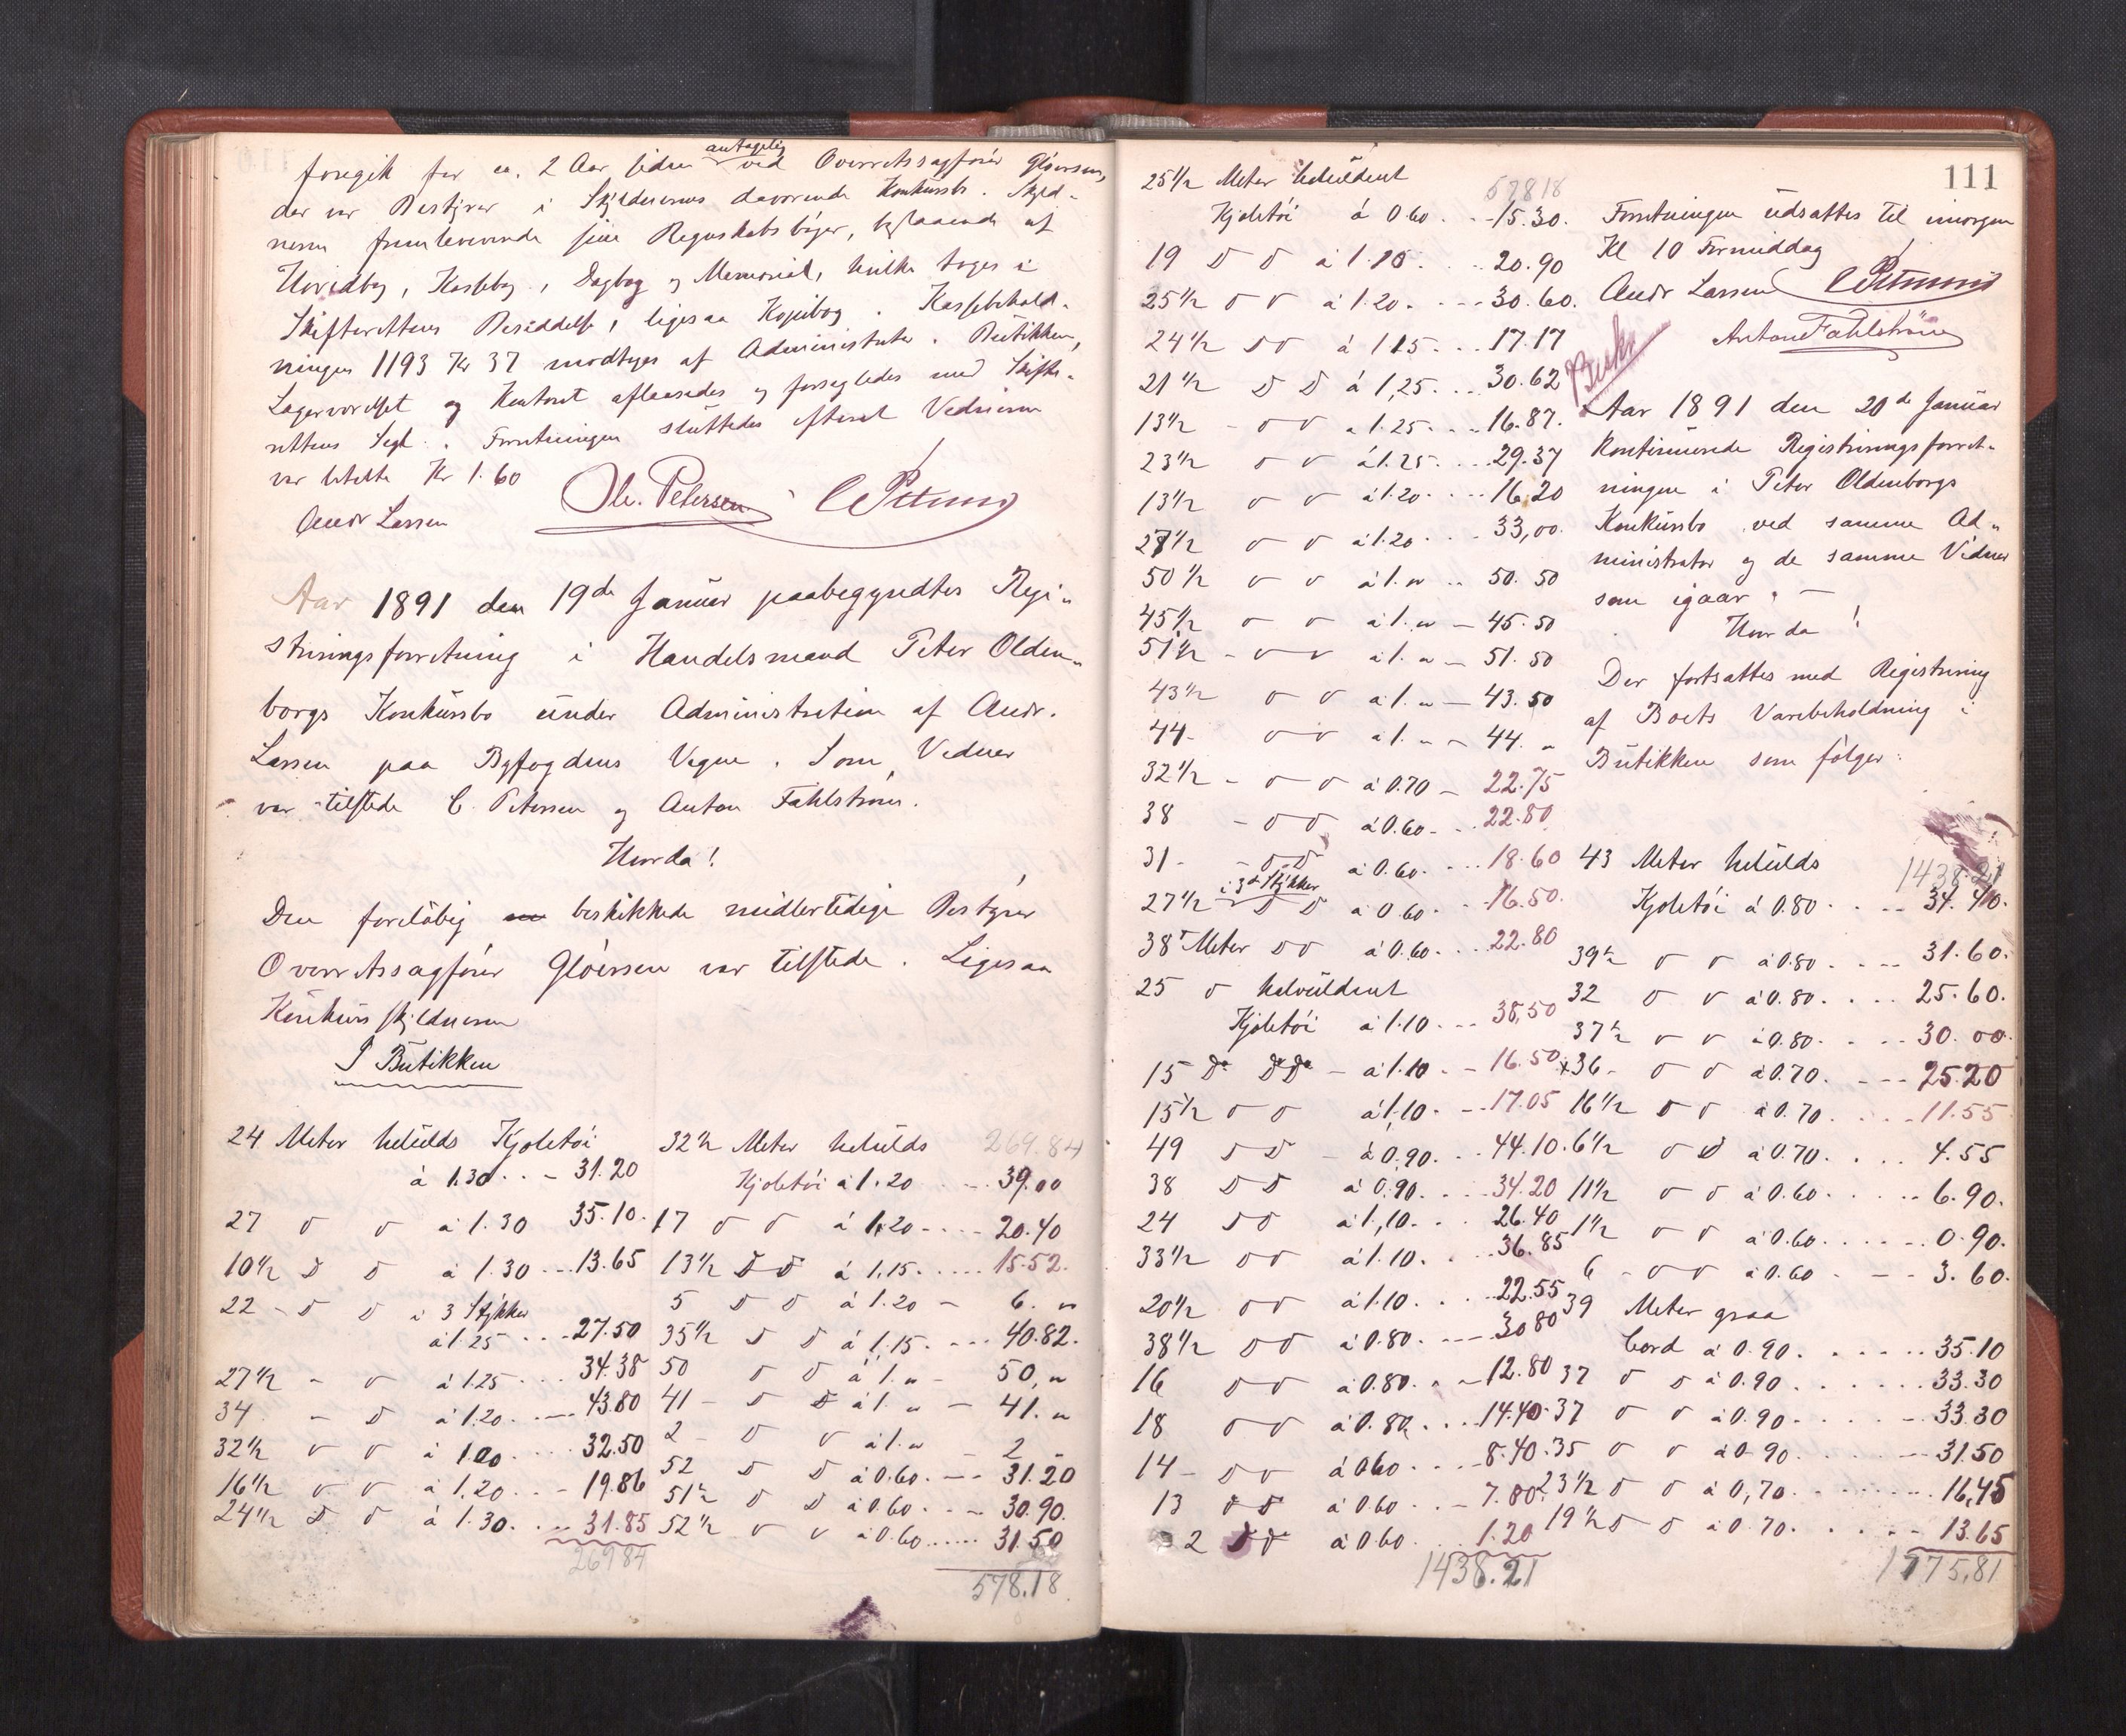 foregik for ca. 2 Aar siden antagelig ved Overretssagfører Gløersen,
der var Bestyrer i Skyldnerens davørende Konkursbo. Skyld-
neren fremleverede sine Regnskabsbøger, bestaaende af
Hovedbog, Kassebog, Dagbog og Memorial, hvilke toges i
Skifterettens Besiddelse, ligesaa Kopibog. Kassebehold-
ningen 1193 Kr 37 modtoges af Administrator. Butikken,
Lagerværelset og Kontoret aflaasedes og forsegledes med Skifte-
rettens Segl. Forretningen sluttedes efterat Vidnerne
var betalte Kr 1.60
Andr Larsen Ole. Petersen C Petersen
Aar 1891 den 19de Januar paabegyndtes Regi-
streringsforretning i Handelsmand Peter Olden-
borgs Konkursbo under Administration af Andr.
Larsen paa Byfogdens Vegne. Som Vidner
var tilstede C. Petersen og Anton Fahlstrøm.
Hvorda!
Den foreløbig beskikkede midlertidige Bestyrer
Overretssagfører Gløersen var tilstede. Ligesaa
Konkursskyldneren
I Butikken
24 Meter helulds Kjoletøi
à 1.30 . . - 31.20
27 d d à 1.30 35.10.
10 1/2 d d à 1.30 - - - 13.65
22 - d d i 3 Stykker
à 1.25 . . . 27.50
27 1/2 - d à 1.25 . . . 34.38
34 - d à 1.20 . . - 43.80
32 1/2 d d à 1.00 . . . . 32.50
16 1/2 d d à 1.20 . . . - 19.86
24 1/2 d d à 1.30. . . . 31.85
26984
32 1/2 Meter helulds 269.84
Kjoletøi à 1.20 . . . . 39.00
17 d d à 1.20 - - . . 20.40
13 1/2 d d à 1.15 . . . . . 15.52.
5 d d à 1.20 - 6. "
35 1/2 d d à 1.15. - - - 40.82.
50 d d à 1. " - 50, "
41 - d d à 1. " - 41. "
2 - d d à 1. " - 2 -
52 d d à 0.60. - - 31.20
51 1/2 d d à 0.60 . . . 30.90.
52 1/2 d d à 0.60 . . . . . 31.50
578.18
111
25 1/2 Meter heluldent 57818
Kjoletøi á 0.60 . . - 15.30.
19 d d à 1.10 . . . 20.90
25 1/2 d d à 1.20 . - - - 30.60.
24 1/2 d d à 1.15 . . . 17.17
21 1/2 d d à 1,25. . . . 30.62
13 1/2 - d d à 1.25 . . . . 16.87.
23 1/2 d d à 1.25. . . . 29.37
13 1/2 d d à 1.20 . . . . 16.20
27 1/2 d d à 1.20 . . . . 33,00.
50 1/2 d d à 1. " . . 50.50
45 1/2 d d à 1. " - 45.50
51 1/2 - d d à 1. " - 51.50
43 1/2 d d à 1. " - 43.50
44 - d d à 1. " - 44. "
32 1/2 - d d à 0.70 - 22.75
38 - d d à 0.60 - . . 22.80
31 - - d d à 0.60. . . . 18.60
27 1/2 i 3 Stykker d d à 0.60 . . . 16.50.
38 Meter d d à 0.60 . . . . 22.80
25 d halvuldent
Kjoletøi à 1.10 . - - 38,50
15 Do DoDo - à 1.10 . - 16.50
15 1/2 d d à 1,10. . - 17.05
49 d d - à 0,90 . . . 44.10.
38 d d à 0,90 . . . . 34.20
24 d d à 1,10 . . . 26.40
33 1/2 d d à 1.10 . . . . 36.85
20 1/2 d d à 1.10 . . . . 22.55
38 1/2 d d à 0.80. - - - 30 80
16 d d à 0.80 . . - 12.80
18 d d à 0.80 . . . 14.40
14 - d d à 0.60 . . . - 8.40
13 d d à 0.60 . . - 7.80
2 d d à 0.60 . . . 1.20
1438.21
Forretningen udsattes til imorgen
Kl 10 Formiddag
Andr Larsen C Petersen
Anton Fahlstrøm
Aar 1891 den 20de Januar
kontinuerede Registreringsforret-
ningen i Peter Oldenborgs
Konkursbo ved samme Ad-
ministrator og de samme Vidner
som igaar. -
Hvorda!
Der fortsattes med Registrering
af Boets Varebeholdning i
Butikken som følger:
43 Meter helulds 1438.21
Kjoletøi á 0.80 . . . - - 34.40.
39 1/2 d d à 0.80 . . - - 31.60.
32 d d à 0.80 . . . . 25.60.
37 1/2 d d à 0.80 . . . . 30.00.
x36 - d d à 0.70. - - - 25.20
16 1/2 d d à 0.70 . . . . 11.55
6 1/2 d d à 0.70 . . . . 4.55
11 1/2 d d à 0.60 . . . . . 6.90.
1 1/2 d d à 0.60 . . . . - 0.90.
6 - d d à 0.60 - - - 3.60.
39 Meter graa
Cord à 0.90. . . . . . 35.10
37 d d à 0.90 . . . . . 33.30
37 d d à 0.90 . . . . - 33.30
35 d d à 0.90 . . . . - 31.50
23 1/2 d d à 0,70. . . . . . 16,45
19 1/2 d d à 0.70. . . . - - 13.65
1775,81